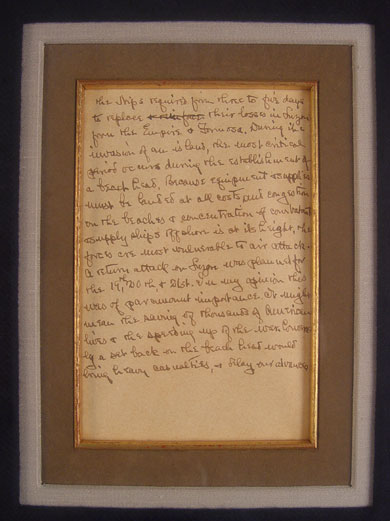 the ships require from three to five days
to replace their losses in Luzon
from the Empire & Formosa. During the
invasion of an island, the most critical
period occurs during the establishment of
a beach head. Because equipment & supplies
must be landed at all costs and congestion
on the beaches & concentration of combatant
& supply ships offshore is at its height, the
forces are most vulnerable to air attack.
A return attack on Luzon was planned for
the 19th, 20th & 21st. & in my opinion this
was of paramount importance. It might
mean the saving of thousands of American
lives & the speeding up of the war. Converse-
ly a set back on the beach head would
bring heavy casualties, & delay our advance